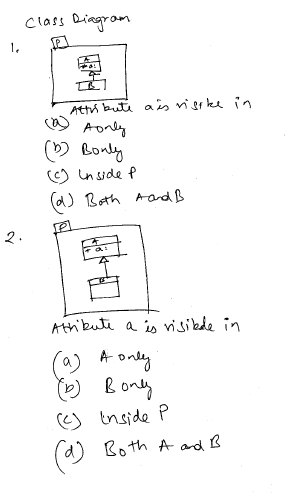 Class Diagram
1.
P
A
+ a:
B
Attribute a is visible in
(a) A only
(b) B only
(c) Inside P
(d) Both A and B
2.
P
A
+ a:
B
Attribute a is visible in
(a) A only
(b) B only
(c) Inside P
(d) Both A and B